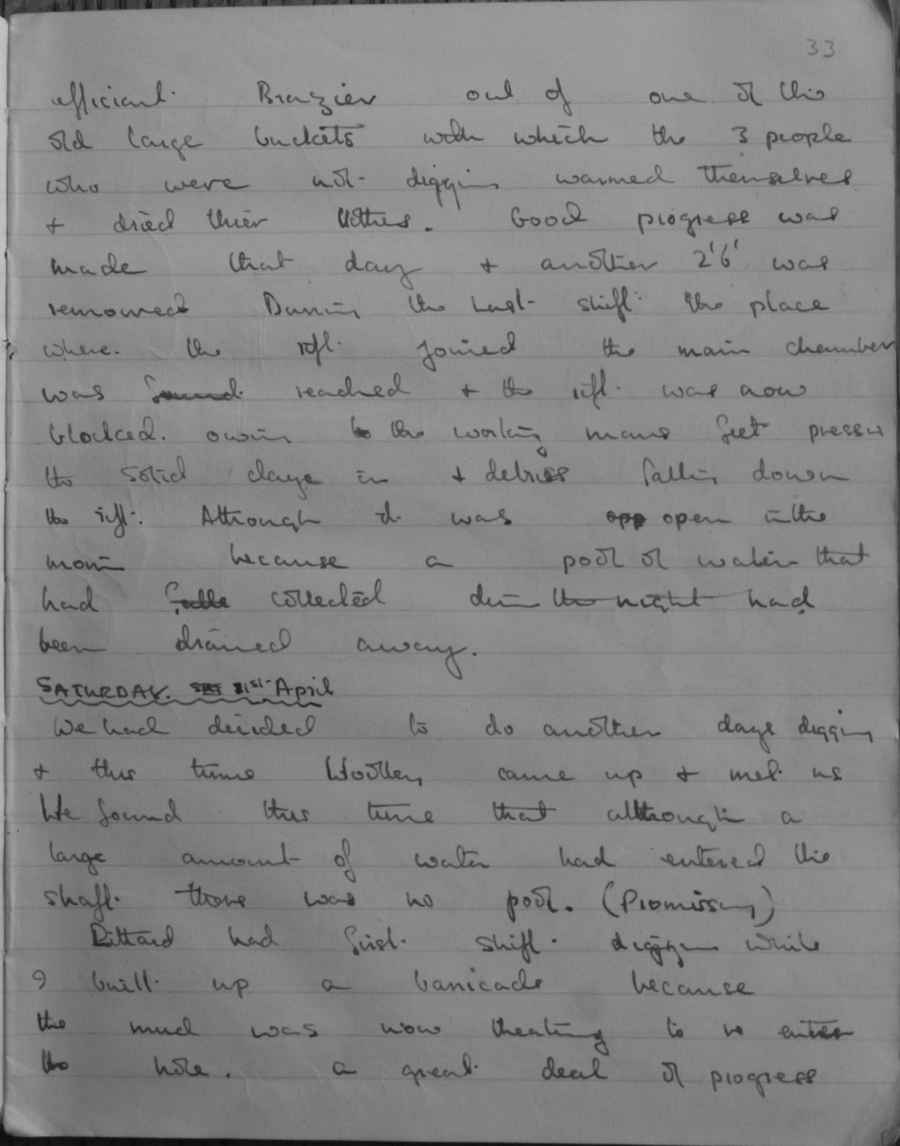 33
efficient Brazier out of one of the
old large buckets with which the 3 people
who were not diggin warmed themselves
+ dried thier clothes. Good progress was
made that day + another 2'6' was
removed Durrin the last shift the place
where the rift joined the main chamber
was found reached + the rift was now
blocked. owin to the working mans feet pressin
the solid clays in + debriss fallin down
the rift. Although it was opp open in the
mornin because a pool of water that
had falle collected durin the night had
been drained away.
SATURDAY. 21st April
We had decided to do another days diggin
+ this time Woolley came up + met us
We found this time that although a
large amount of water had entered the
shaft there was no pool. (Promissing)
Pittard had first shift diggin while
I built up a baricade because
the mud was now theating to re enter
the hole. a great deal of progress